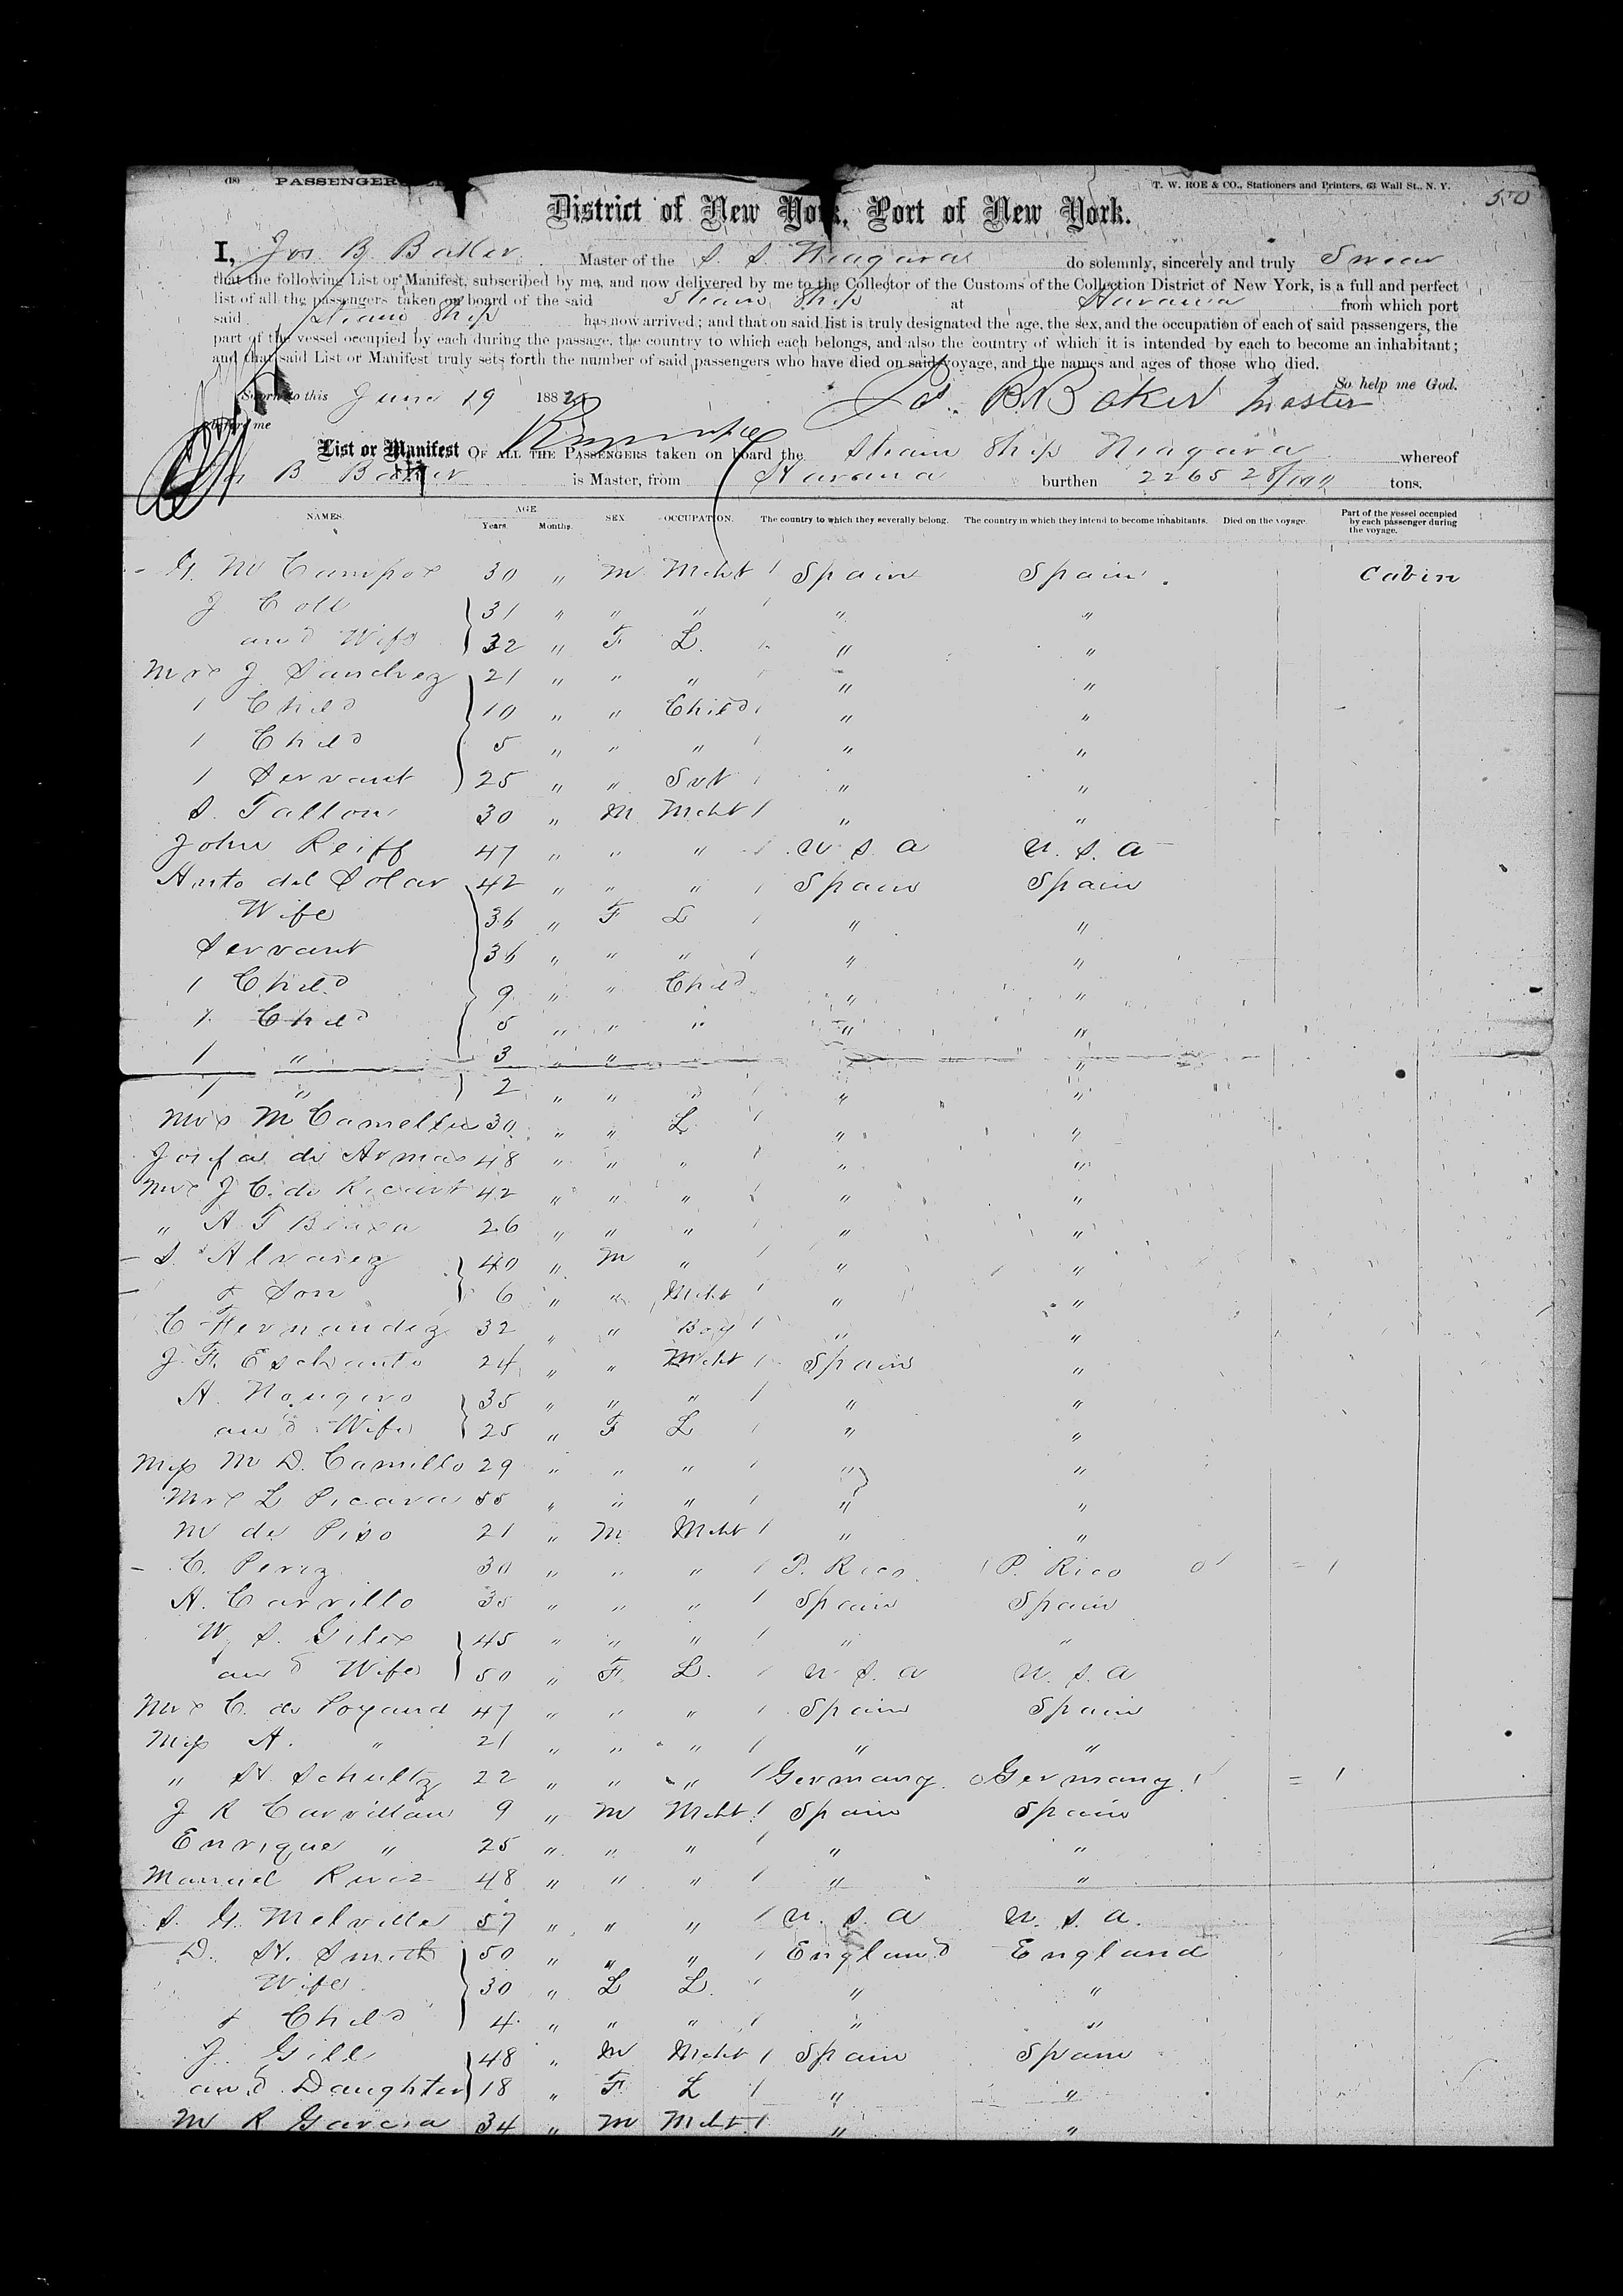 (18) PASSENGER
T. W. ROE & CO., Stationers and Printers, 63 Wall St., N. Y.
550
District of New York, Port of New York.
I, Jos. B. Baker Master of the S. S. Niagara do solemnly, sincerely and truly Swear
that the following List or Manifest, subscribed by me, and now delivered by me to the Collector of the Customs of the Collection District of New York, is a full and perfect
list of all the passengers taken on board of the said Steam Ship at Havana from which port
said Steam Ship has now arrived; and that on said list is truly designated the age, the sex, and the occupation of each of said passengers, the
part of the vessel occupied by each during the passage, the country to which each belongs, and also the country of which it is intended by each to become an inhabitant;
and that said List or Manifest truly sets forth the number of said passengers who have died on said voyage, and the names and ages of those who died.
So help me God.
Sworn to this June 19 1882 Jos. B. Baker Master
before me
List or Manifest OF ALL THE PASSENGERS taken on board the Steam Ship Niagara whereof
Jos B Baker is Master, from Havana burthen 2265 28/100 tons.
NAMES. AGE Years. Months. SEX. OCCUPATION. The country to which they severally belong. The country in which they intend to become inhabitants. Died on the voyage. Part of the vessel occupied by each passenger during the voyage.
G. M Campos 30 " M Mcht / Spain Spain Cabin
J Coll 31 " " " / " "
and Wife 32 " F L. " "
Mrs J Sanchez 21 " " " " "
1 Child 10 " " Child / " "
1 Child 5 " " " / " "
1 Servant 25 " " Svt / " "
S. Fallon 30 " M Mcht / " "
John Reiff 47 " " " / U. S. A U. S. A
Anto del Solar 42 " " " / Spain Spain
Wife 36 " F L / " "
Servant 36 " " " / " "
1 Child 9 " " Child " "
1 Child 5 " " " " "
1 " 3 " " "
1 " 2 " " " / " "
Mrs M 30 " " L / " "
Josefa de Armas 48 " " " / " "
Mrs J C. de 42 " " " / " "
" A. F 26 " " " / " "
S. Alvarez 40 " M " / " "
& Son 6 " " Mcht / " "
C Fernandez 32 " " Boy / " "
J. F. 24 " " Mcht / Spain "
A. 35 " " " / " "
and Wife 25 " F L / " "
Miss M D. Camillo 29 " " " / " "
Mrs L Picava 55 " " " / " "
M de Piso 21 " M Mcht / " "
C. Perez 30 " " " / P. Rico / P. Rico 0 / = /
A. Carrillo 35 " " " / Spain Spain
W. S. Giles 45 " " " / " "
and Wife 50 " F L. / U. S. A U. S. A
Mrs C. de 47 " " " / Spain Spain
Miss A. " 21 " " " / " "
" H. Schultz 22 " " " / Germany 0 Germany / = /
J R 9 " M Mcht / Spain Spain
Enrique " 25 " " " / " "
Manuel Ruiz 48 " " " / " "
S. G. Melville 57 " " " / U. S. A U. S. A.
D. H. Smith 50 " " " / England England
Wife 30 " L L. / " "
& Child 4 " " " / " "
J. Gill 48 " M Mcht / Spain Spain
and Daughter 18 " F L / " "
M R Garcia 34 " M Mcht / " "